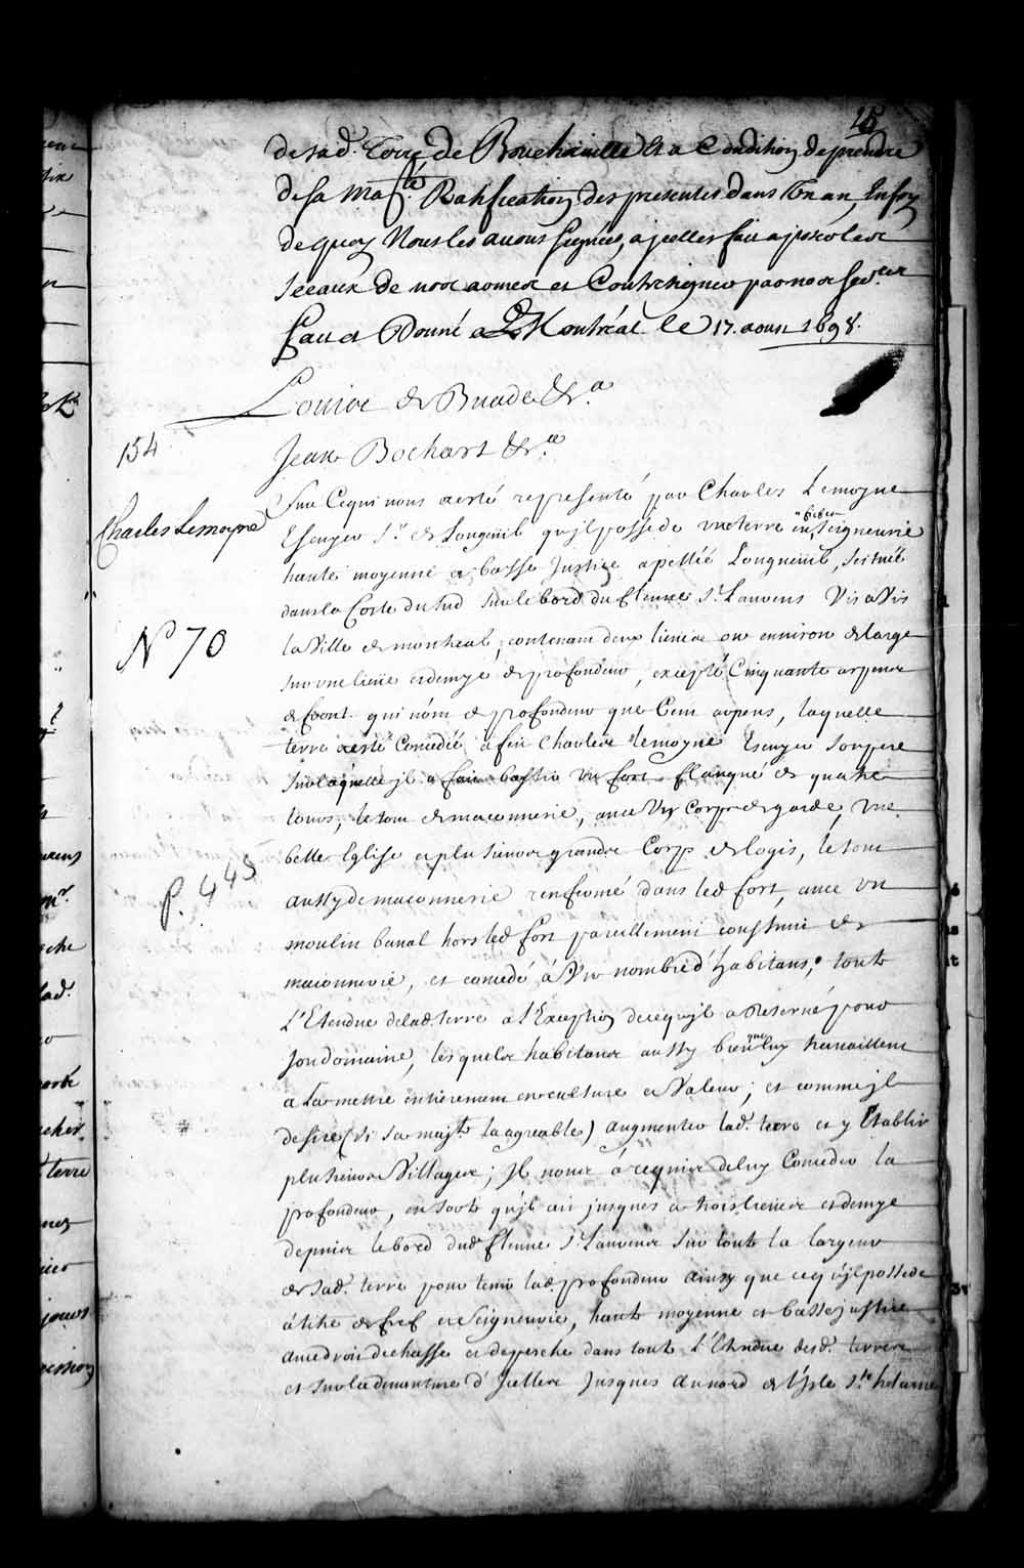 15
de sad. Terre de Boucherville Et a Condition de prendre
de sa Maj.té Ratification des presentes dans Un an, En foy
de quoy Nous les avons signées, a jcelles fait apposer les
sceaux de nos armes et Contresigner par nos Secr.res
fait et Donné a Montréal le 17. aoust 1698.
Louis de Buade &.a
154
Jean Bochart &.a
Sur Ce qui nous a esté representé par Charles Lemoyne
Charles Lemoyne
Escuyer S.r de Longueüil qu'jl possede une terre en fief et Seigneurie
haute moyenne et basse Justice apellée Longueüil, scituée
dans la Coste du Sud sur le bord du fleuve S.t Laurens Vis a Vis
la Ville de montreal, contenant deux lieües ou environ de large
N 70
sur une lieüe et demye de profondeur, excepté Cinquante arpens
de front qui n'ont de profondeur que Cent arpens, laquelle
terre a esté Concedée a feu Charles Lemoyne Escuyer son pere
sur laquelle jl a fait bastir Un fort flanqué de quatre
tours, le tout de maconnerie, avec Un Corps de garde, une
belle Eglise et plusieurs grands Corps de logis, le tout
P. 443
aussy de maconnerie renfermé dans led fort, avec un
moulin banal hors led fort pareillement construit de
maconnerie, et concedé à Un nombre d'habitans, toute
L'Etendue de lad. terre a l'Exception de ce qu'jl a Reservé pour
son domaine, lesquels habitans aussy bien que luy travaillent
a La mettre entierement en culture et Valeur; et comme jl
desire (si sa maj.té l'a agreable) augmenter lad. terre et y Etablir
plusieurs Villages; Jl nous a requis de luy Conceder la
profondeur, en sorte qu'jl ait jusques a trois lieües et demye
depuis le bord dud. fleuve S.t Laurens sur toute la largeur
de sad. terre pour tenir lad. profondeur ainsy que ce qu'jl possede
à titre de fief et Seigneurie, haute moyenne et basse justice
avec droit de chasse et de pesche dans toute L'Etendue desd. terres
et sur la devanture d'Jcelles Jusques au nord de l'Isle S.te helaine